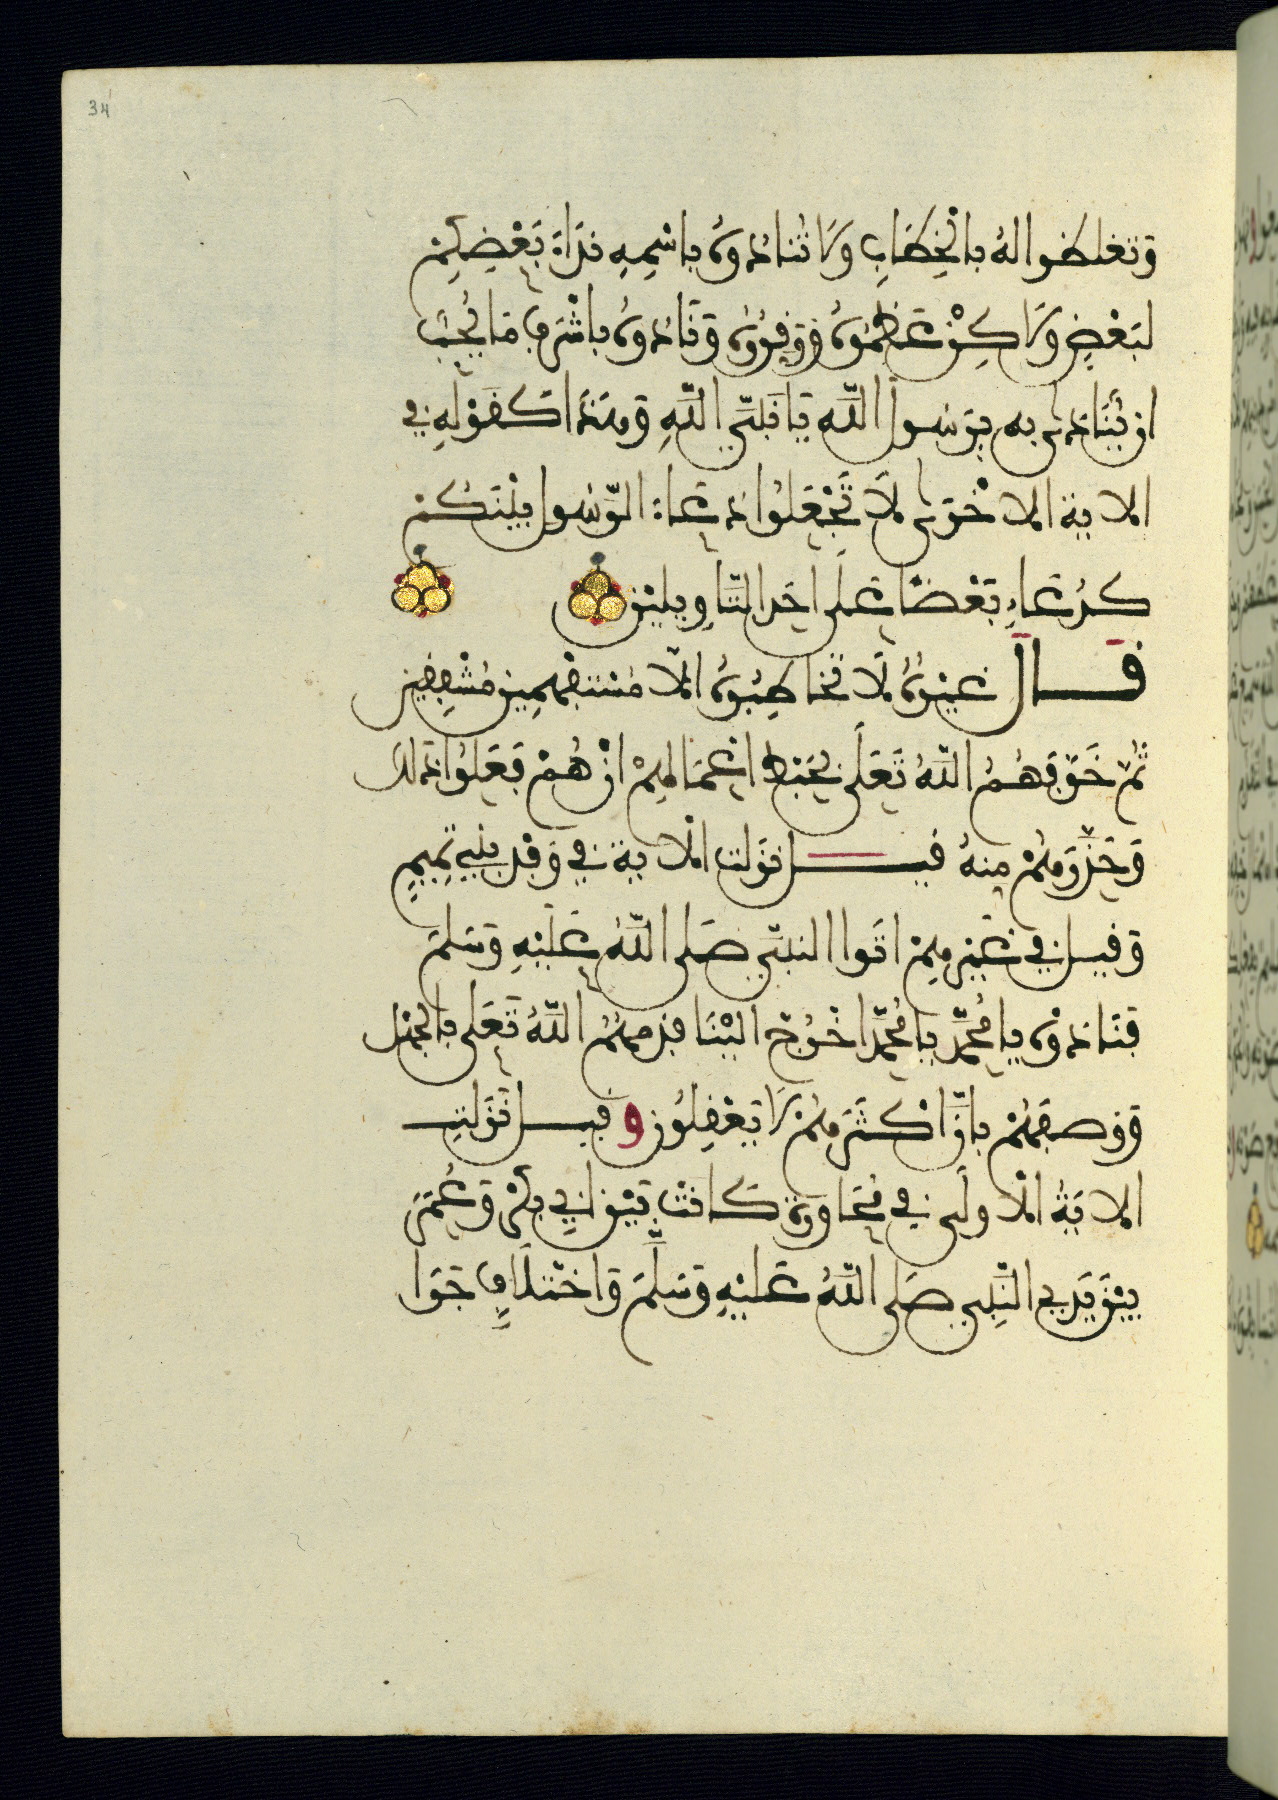 34
وتغلظوا له بالخطاب ولا تنادوه باسمه نداء بعضكم
لبعض ولاكن عظموه ووقروه ونادوه باشرف ما يحب
ان ينادى به يرسول الله يا نبي الله وهذا كقوله في
الاية الاخرى لا تجعلوا دعاء الرسول بينكم
كدعاء بعضا على احد التاويلين
قال غيره لا تخاطبوه الا مستفهمين مشفقين
ثم خوفهم الله تعلى بحبط اعمالهم ان هم فعلوا ذلك
وحذرهم منه قيل نزلت الاية في وفد بني تميم
وقيل في غيرهم اتوا النبي صلى الله عليه وسلم
فنادوه يا محمد يا محمد اخرج الينا فذمهم الله تعلى بالجهل
ووصفهم بان اكثرهم لا يعقلون وقيل نزلت
الاية الاولى في محاورة كانت بين ابي بكر وعمر
بين يدي النبي صلى الله عليه وسلم واختلاف جرا